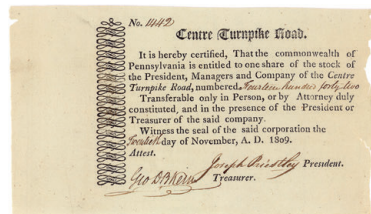 No. 1442
Centre Turnpike Road.
It is hereby certified, That the commonwealth of
Pennsylvania is entitled to one share of the stock of
the President, Managers and Company of the Centre
Turnpike Road, numbered Fourteen hundred forty two
Transferable only in Person, or by Attorney duly
constituted, and in the presence of the President or
Treasurer of the said company.
Witness the seal of the said corporation the
Twentieth day of November, A. D. 1809.
Attest.
Joseph Priestley President.
Geo D B Keim Treasurer.